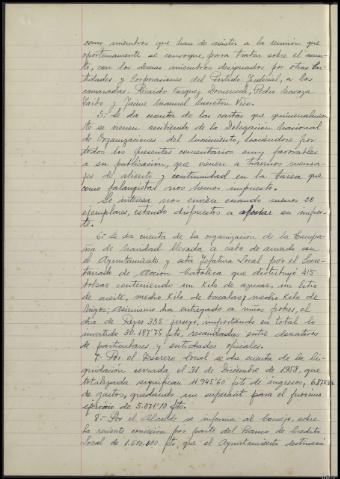 como miembros que han de asistir a la reunión que
oportunamente se convoque, para tratar sobre el asun-
to, con los demas miembros designados por otras En-
tidades y Corporaciones del Partido Judicial, a los
camaradas: Ricardo Vazquez Domenech, Pedro
y Jaime Manuel
5.- Se da cuenta de las cartas que quincenalmen-
te se vienen recibiendo de la Delegacion Nacional
de Organizaciones del Movimiento, haciendose por
todos los presentes comentarios muy favorables
a su publicacion, que vienen a traernos mensa-
jes de aliento y continuidad en la tarea que
como falangistas nos hemos impuesto.
Se interesa nos envien cuando menos 20
ejemplares, estando dispuestos a abonar su impor-
te.
6.- Se da cuenta de la organizacion de la Campa-
ña de Navidad llevada a cabo de acuerdo con
el Ayuntamiento y esta Jefatura Local por el Secre-
tariado de Accion Catolica que distribuyó 415
bolsas conteniendo un Kilo de azucar, un litro
de aceite, medio Kilo de bacalao, medio Kilo de
higos; asimismo ha entregado a niños pobres, el
dia de Reyes 335 juegos, importando en total lo
invertido 30.187'75 pts, recaudadas entre donativos
de particulares y entidades oficiales.
7.- Por el Tesorero Local se da cuenta de la li-
quidación cerrada el 31 de Diciembre de 1958, que
totalizada significan 11.945'60 pts de ingresos,
de gastos, quedando un superavit para el proximo
ejercicio de pts.
8.- Por el Alcalde se informa al Consejo, sobre
la reciente concesion por parte del Banco de Credito
Local de 1.500.000 pts, que el Ayuntamiento